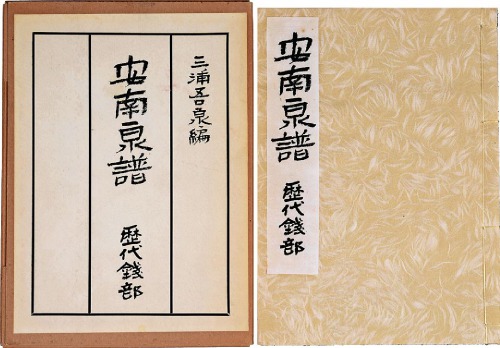 三浦吾泉編
安南泉譜
歴代銭部
安南泉譜
歴代銭部